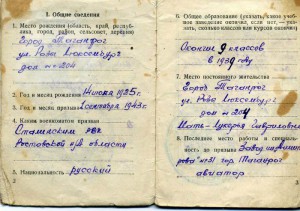 I. Общие сведения
1. Место рождения (область, край, республика, город, район, сельсовет, деревня)
Город Таганрог
ул. Роза Люксембург
дом № 204
2. Год и месяц рождения 1925г.
3. Год и месяц призыва 1943г.
4. Каким военкоматом призван
Сталинским РВК
Ростовской области
5. Национальность русский
6. Общее образование (указать, какое учебное заведение окончил, если нет — указать, сколько классов или курсов окончил)
Окончил 9 классов
в 1939 году
7. Место постоянного жительства
Город Таганрог
ул. Роза Люксембург
дом № 204
Мать - Лукерья Гавриловна
8. Последнее место работы и специальность до призыва Завод им.
№ 31 гор. Таганрог
авиатор